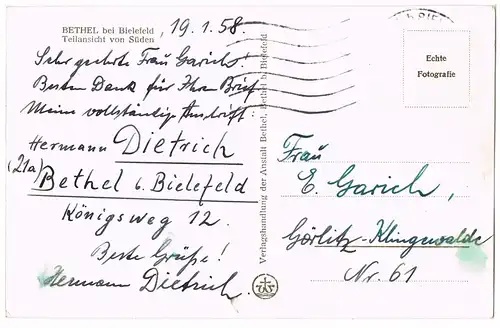 BETHEL bei Bielefeld
Teilansicht von Süden
19.1.58.
Sehr geehrte Frau Garich!
Besten Dank für Ihren Brief
Meine vollständige Anschrift:
Hermann Dietrich
(21a)
Bethel b. Bielefeld
Königsweg 12.
Beste Grüße!
Hermann Dietrich.
Verlagshandlung der Anstalt Bethel, Bethel b. Bielefeld
Echte
Fotografie
Frau
E. Garich,
Görlitz-Klingewalde
Nr. 61